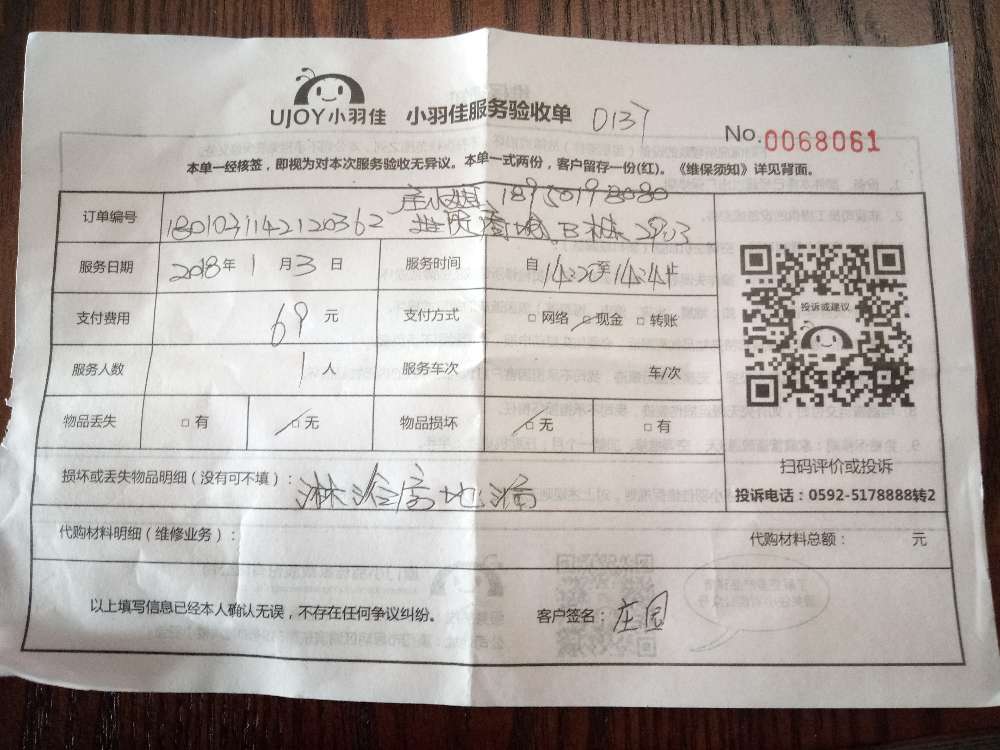 UJOY小羽佳 小羽佳服务验收单 0137
No.0068061
本单一经核签，即视为对本次服务验收无异议。本单一式两份，客户留存一份(红)。《维保须知》详见背面。
订单编号 18950198080
1801031142120362 B栋2903
服务日期 2018年1月3日 服务时间 自14:20至14:24
支付费用 69元 支付方式 □网络 □现金 □转账
服务人数 1人 服务车次 车/次
物品丢失 □有 □无 物品损坏 □无 □有
投诉或建议
扫码评价或投诉
投诉电话：0592-5178888转2
损坏或丢失物品明细（没有可不填）：淋浴房地漏
代购材料明细（维修业务）： 代购材料总额： 元
以上填写信息已经本人确认无误，不存在任何争议纠纷。 客户签名：庄园